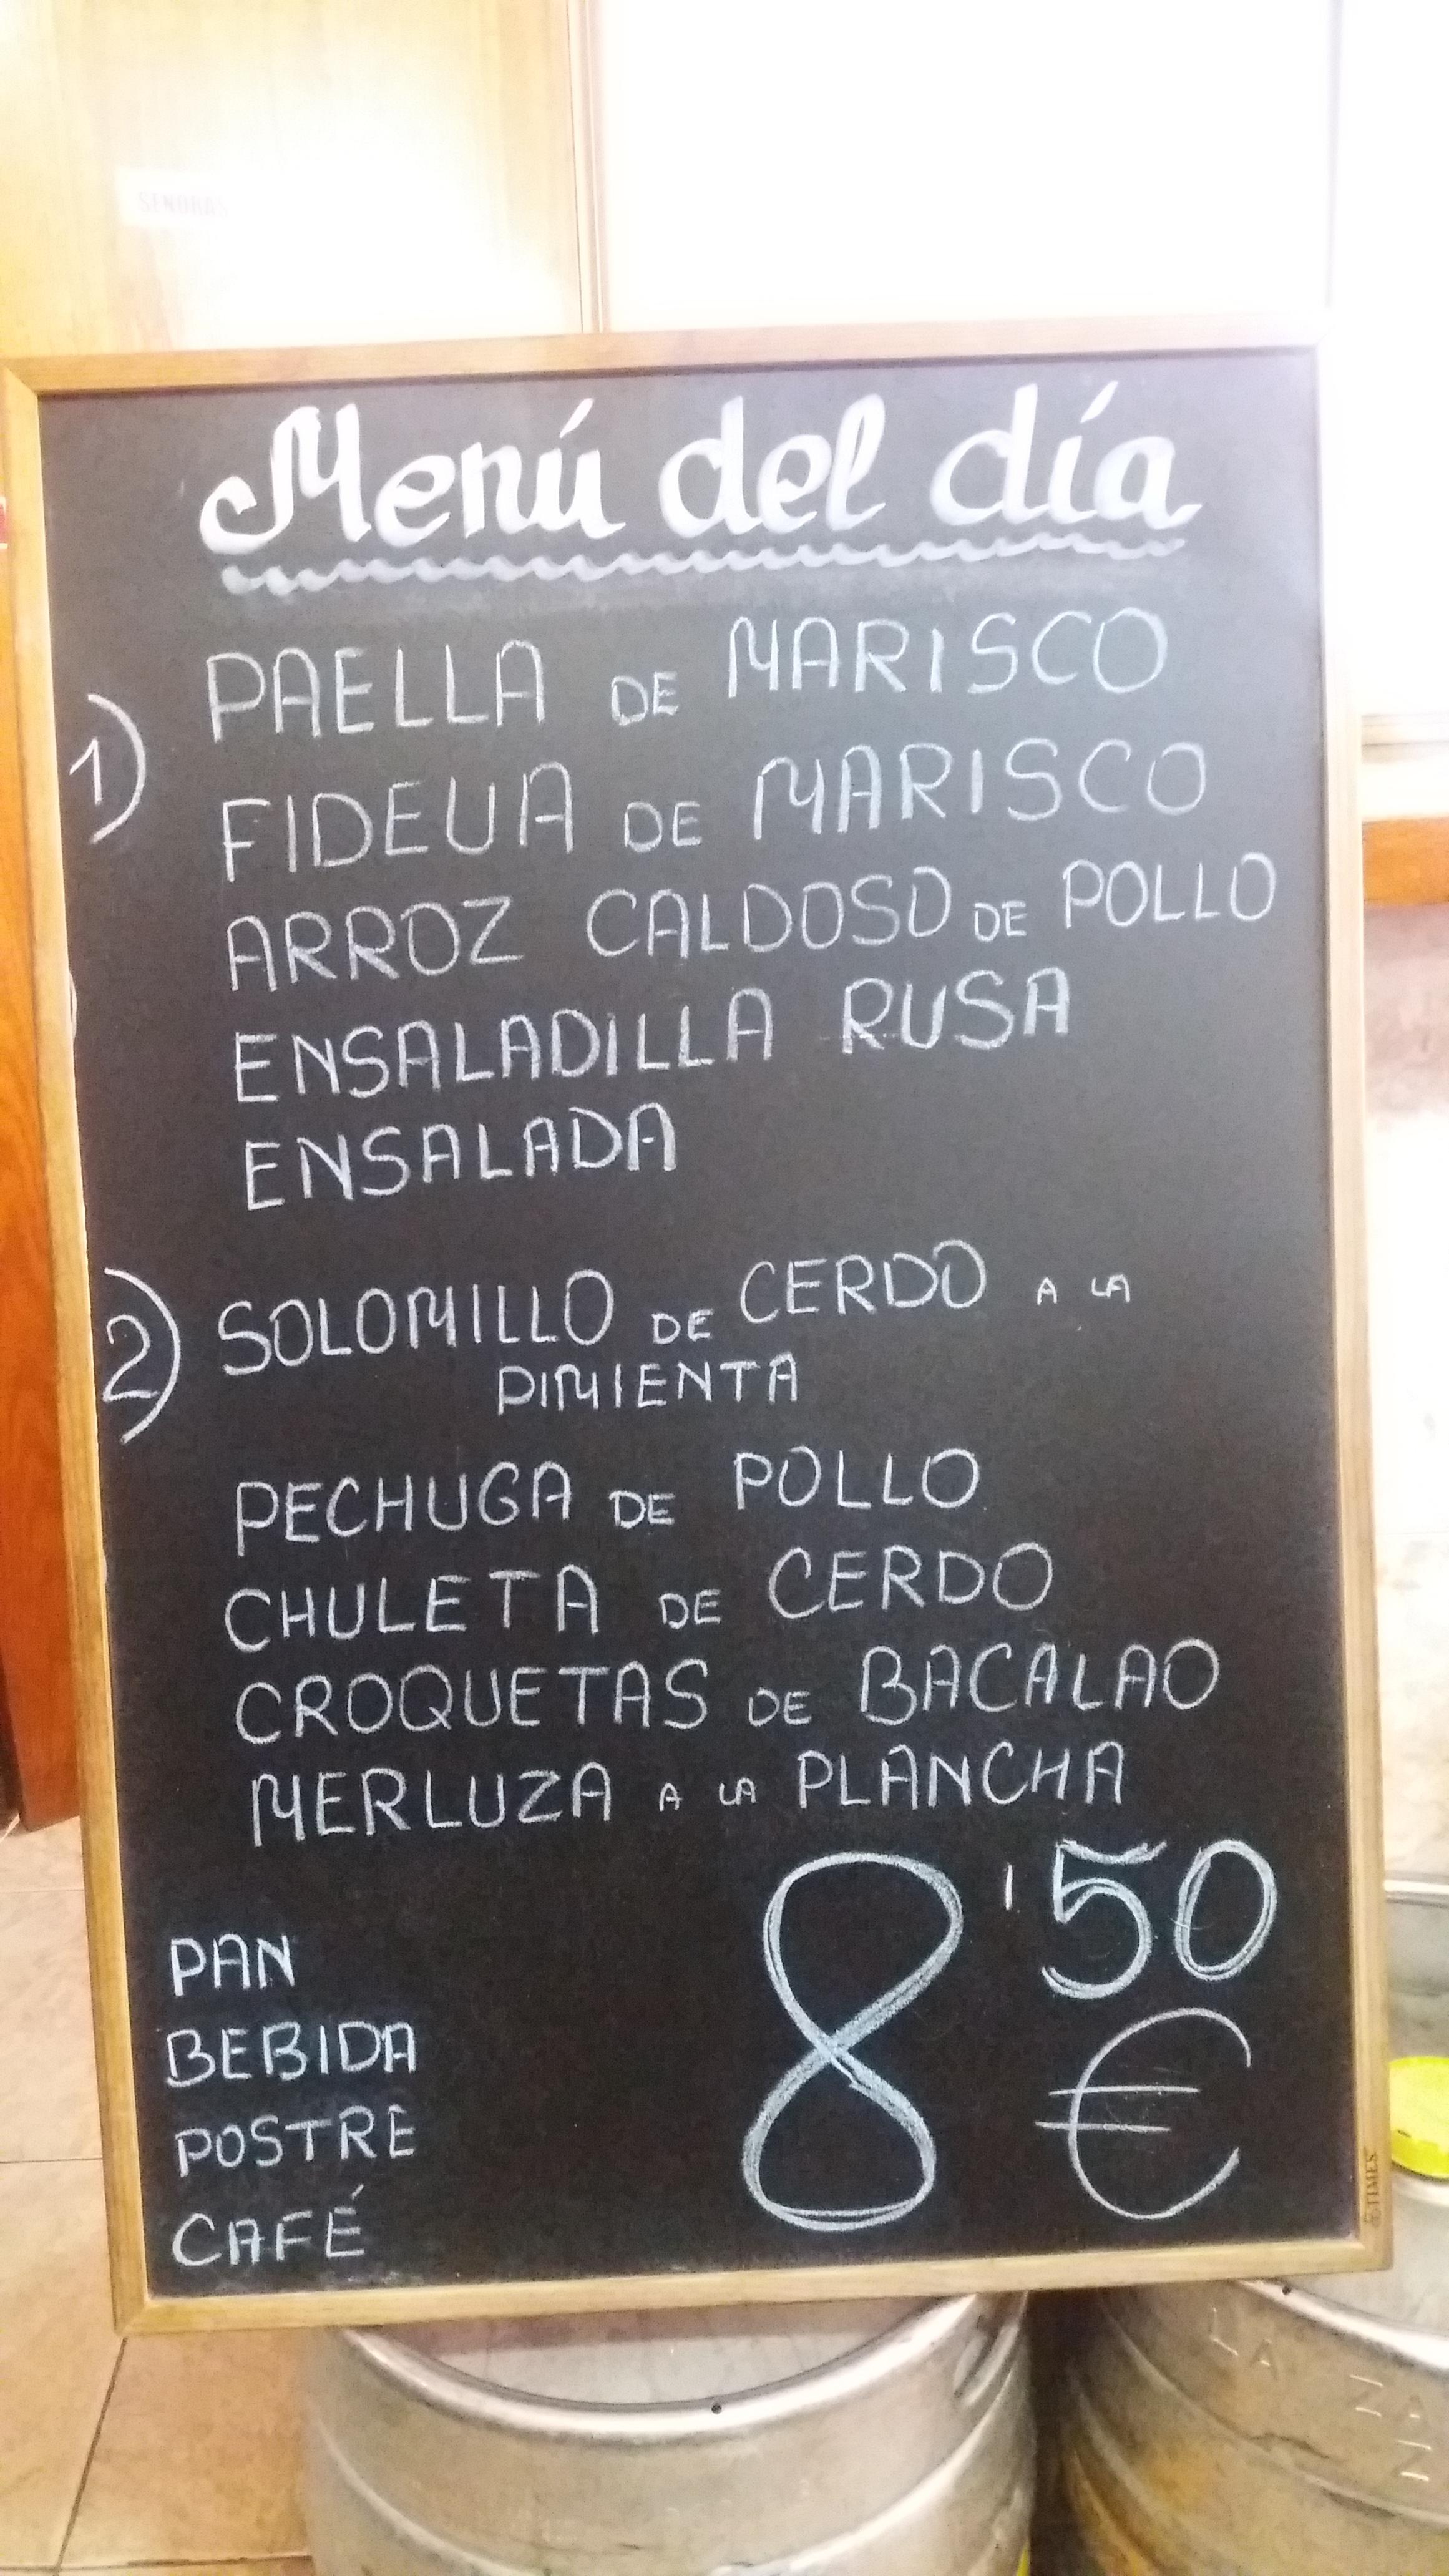 SEÑORAS
Menú del día
1)
PAELLA DE MARISCO
FIDEUA DE MARISCO
ARROZ CALDOSO DE POLLO
ENSALADILLA RUSA
ENSALADA
2) SOLOMILLO DE CERDO A LA
PIMIENTA
PECHUGA DE POLLO
CHULETA DE CERDO
CROQUETAS DE BACALAO
MERLUZA A LA PLANCHA
8'50
€
PAN
BEBIDA
POSTRE
CAFÉ
TIMES
LA